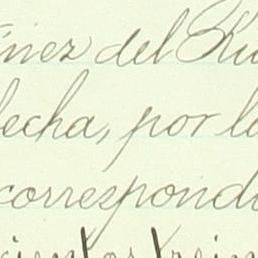 ínez del Ru
fecha, por la
correspondi
cientos trein